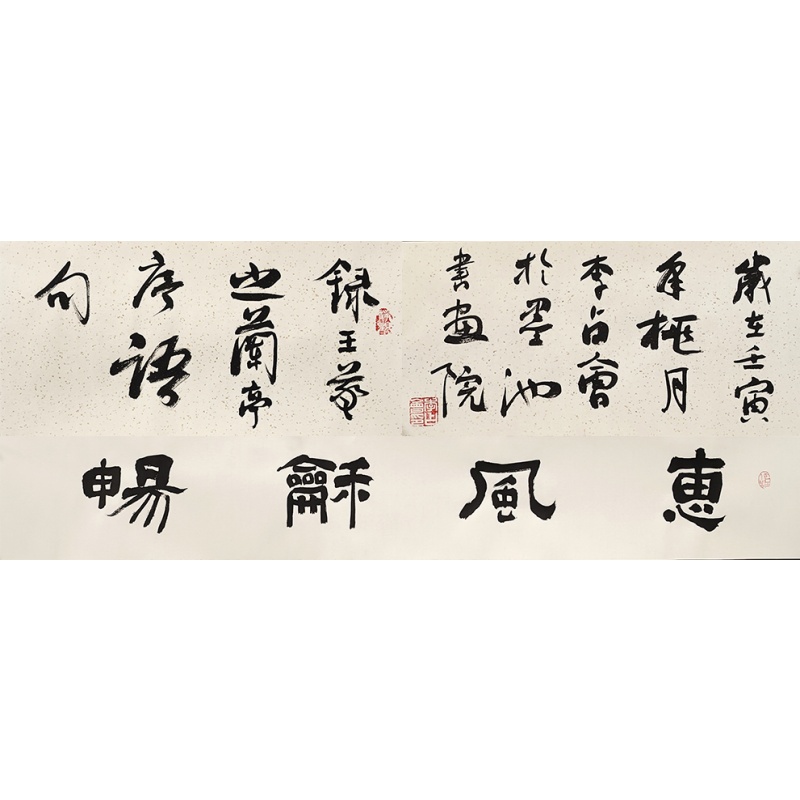 歲在壬寅
年桃月
李占會
於墨池
書畫院
錄王羲
之蘭亭
序語
句
惠風龢暢